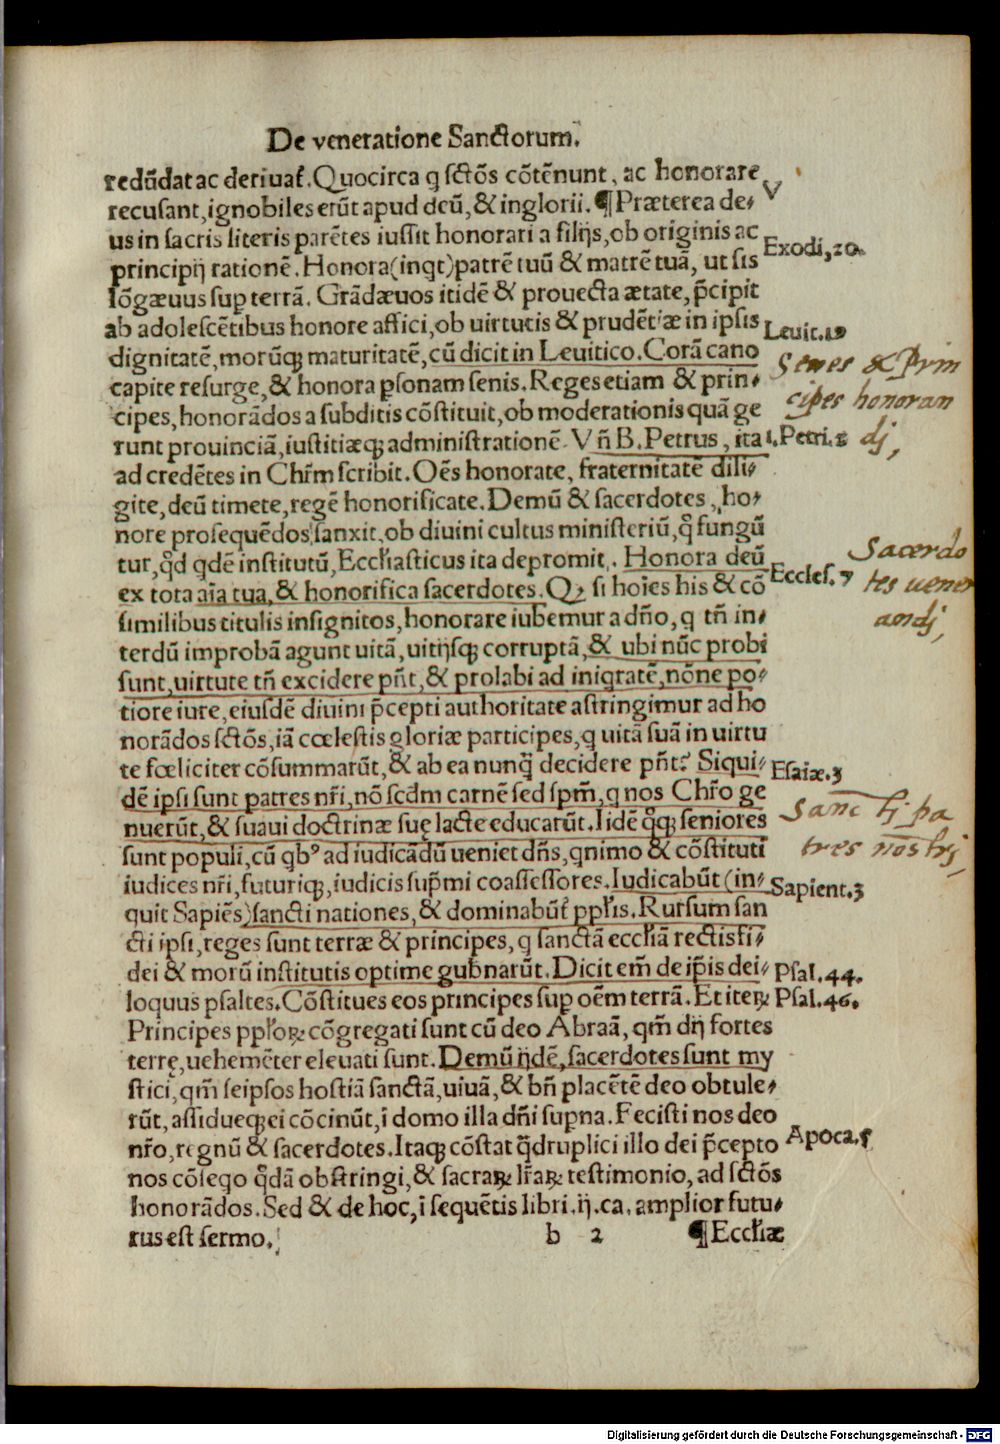 De veneratione Sanctorum.
redūdat ac deriuat̄. Quocirca q sctōs cōtēnunt, ac honorare
recusant, ignobiles erūt apud deū, & inglorii. ¶ Præterea de⸗
V
us in sacris literis parētes iussit honorari a filijs, ob originis ac
Exodi, 20.
principij rationē. Honora (inqt) patrē tuū & matrē tuā, ut sis
lōgæuus sup terrā. Grādæuos itidē & prouecta ætate, p̄cipit
ab adolescētibus honore affici, ob uirtutis & prudētiæ in ipsis
Leuit. 19
dignitatē, morūq; maturitatē, cū dicit in Leuitico. Corā cano
capite resurge, & honora psonam senis. Reges etiam & prin⸗
Senes & Prin
cipes, honorādos a subditis cōstituit, ob moderationis quā ge
cipes honoran
runt prouinciā, iustitiæq; administrationē. Vn̄ B. Petrus, ita
1. Petri. 2
dj,
ad credētes in Chr̄m scribit. Oēs honorate, fraternitatē dili⸗
gite, deū timete, regē honorificate. Demū & sacerdotes, ho⸗
nore prosequēdos sanxit, ob diuini cultus ministeriū, q̄ fungū
Sacerdo
tur, qd̄ qdē institutū, Eccl̄iasticus ita depromit. Honora deū
Eccles. 7
tes uener
ex tota aīa tua, & honorifica sacerdotes. Qꝫ si hoīes his & cō
similibus titulis insignitos, honorare iubemur a dn̄o, q tn̄ in⸗
andj,
terdū improbā agunt uitā, uitijsq; corruptā, & ubi nūc probi
sunt, uirtute tn̄ excidere pn̄t, & prolabi ad iniqtatē, nōne po⸗
tiore iure, eiusdē diuini p̄cepti authoritate astringimur ad ho
norādos sctōs, iā cœlestis gloriæ participes, q uitā suā in uirtu
te fœliciter cōsummarūt, & ab ea nunq̄ decidere pn̄t? Siqui⸗
Esaiæ. 3
dē ipsi sunt patres nr̄i, nō scd̄m carnē sed sp̄m, q nos Chr̄o ge
Sanctj pa
nuerūt, & suaui doctrinæ suę lacte educarūt. Iidē q̄q; seniores
tres nostrj,
sunt populi, cū qbꝰ ad iudicādū ueniet dn̄s, qnimo & cōstituti
iudices nr̄i, futuriq;, iudicis sup̄mi coassessores. Iudicabūt (in⸗
Sapient. 3
quit Sapiēs) sancti nationes, & dominabūt̄ ppl̄is. Rursum san
cti ipsi, reges sunt terræ & principes, q sanctā eccl̄iā rectis fi⸗
dei & morū institutis optime gubnarūt. Dicit em̄ de ip̄is dei⸗
Psal. 44.
loquus psaltes. Cōstitues eos principes sup oēm terrā. Et iteꝝ
Psal. 46.
Principes ppl̄oꝝ cōgregati sunt cū deo Abraā, qm̄ dij fortes
terrę, uehemēter eleuati sunt. Demū ijdē, sacerdotes sunt my
stici, qm̄ seipsos hostiā sanctā, uiuā, & bn̄ placētē deo obtule⸗
rūt, assidueq; ei cōcinūt, ī domo illa dn̄i supna. Fecisti nos deo
nr̄o, regnū & sacerdotes. Itaq; cōstat q̄druplici illo dei p̄cepto
Apoca. 5
nos cōseqo q̄dā obstringi, & sacraꝝ lr̄aꝝ testimonio, ad sctōs
honorādos. Sed & de hoc, ī sequētis libri. ij. ca. amplior futu⸗
rus est sermo.
b 2
¶ Eccl̄iæ
Digitalisierung gefördert durch die Deutsche Forschungsgemeinschaft - DFG